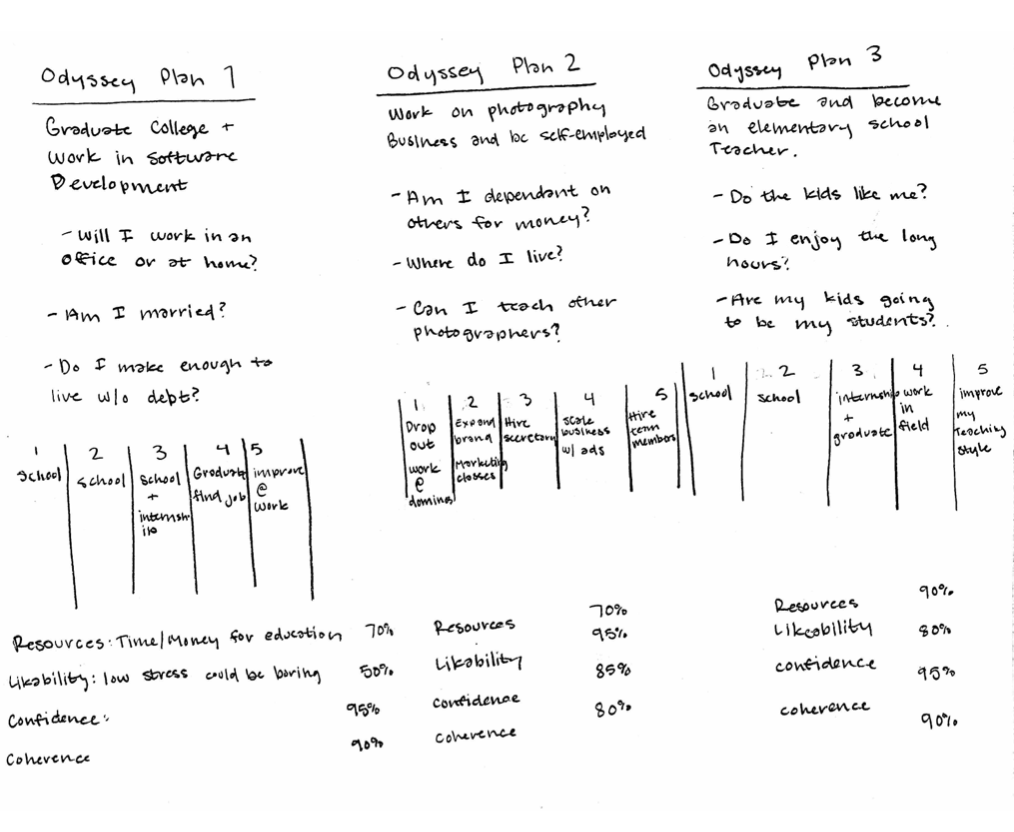 Odyssey Plan 1
Graduate College +
work in software
Development
- Will I work in an
office or at home?
- Am I married?
- Do I make enough to
live w/o debt?
1
School
2
School
3
School
+
internsh
ip
4
Graduate
find job
5
improve
@
work
Resources: Time/Money for education 70%
Likability: low stress could be boring 50%
Confidence: 95%
Coherence 90%
Odyssey Plan 2
Work on photography
Business and be self-employed
- Am I dependant on
others for money?
- Where do I live?
- Can I teach other
photographers?
1
Drop
out
work
@
dominos
2
Expand
brand
Marketing
classes
3
Hire
secretary
4
Scale
business
w/ ads
5
Hire
team
members
Resources 70%
Likability 95%
confidence 85%
coherence 80%
Odyssey Plan 3
Graduate and become
an elementary school
Teacher.
- Do the kids like me?
- Do I enjoy the long
hours?
- Are my kids going
to be my students?
1
School
2
School
3
internship
+
graduate
4
work
in
field
5
improve
my
Teaching
style
Resources 90%
Likeability 80%
confidence 95%
coherence 90%